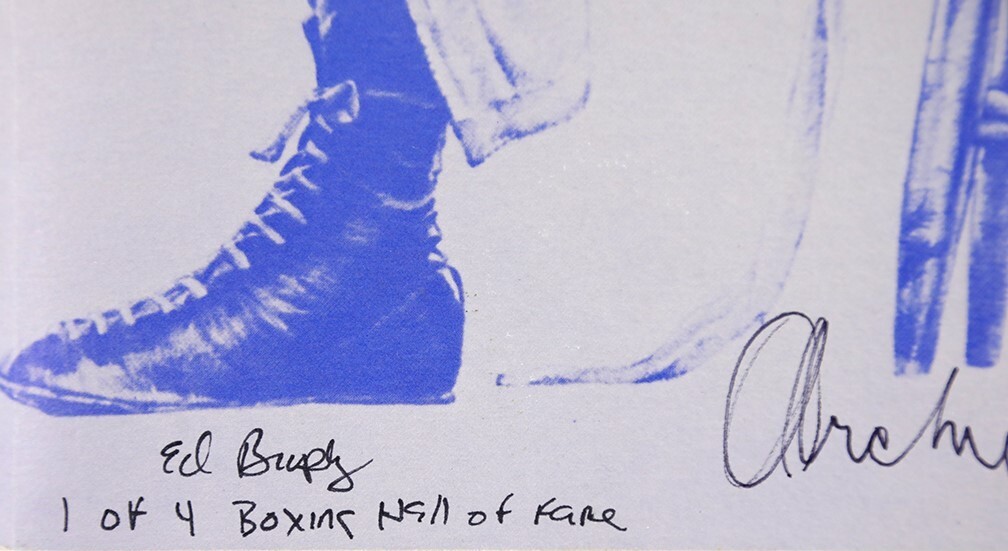 Ed Brophy
1 of 4 Boxing Hall of Fame
Archie